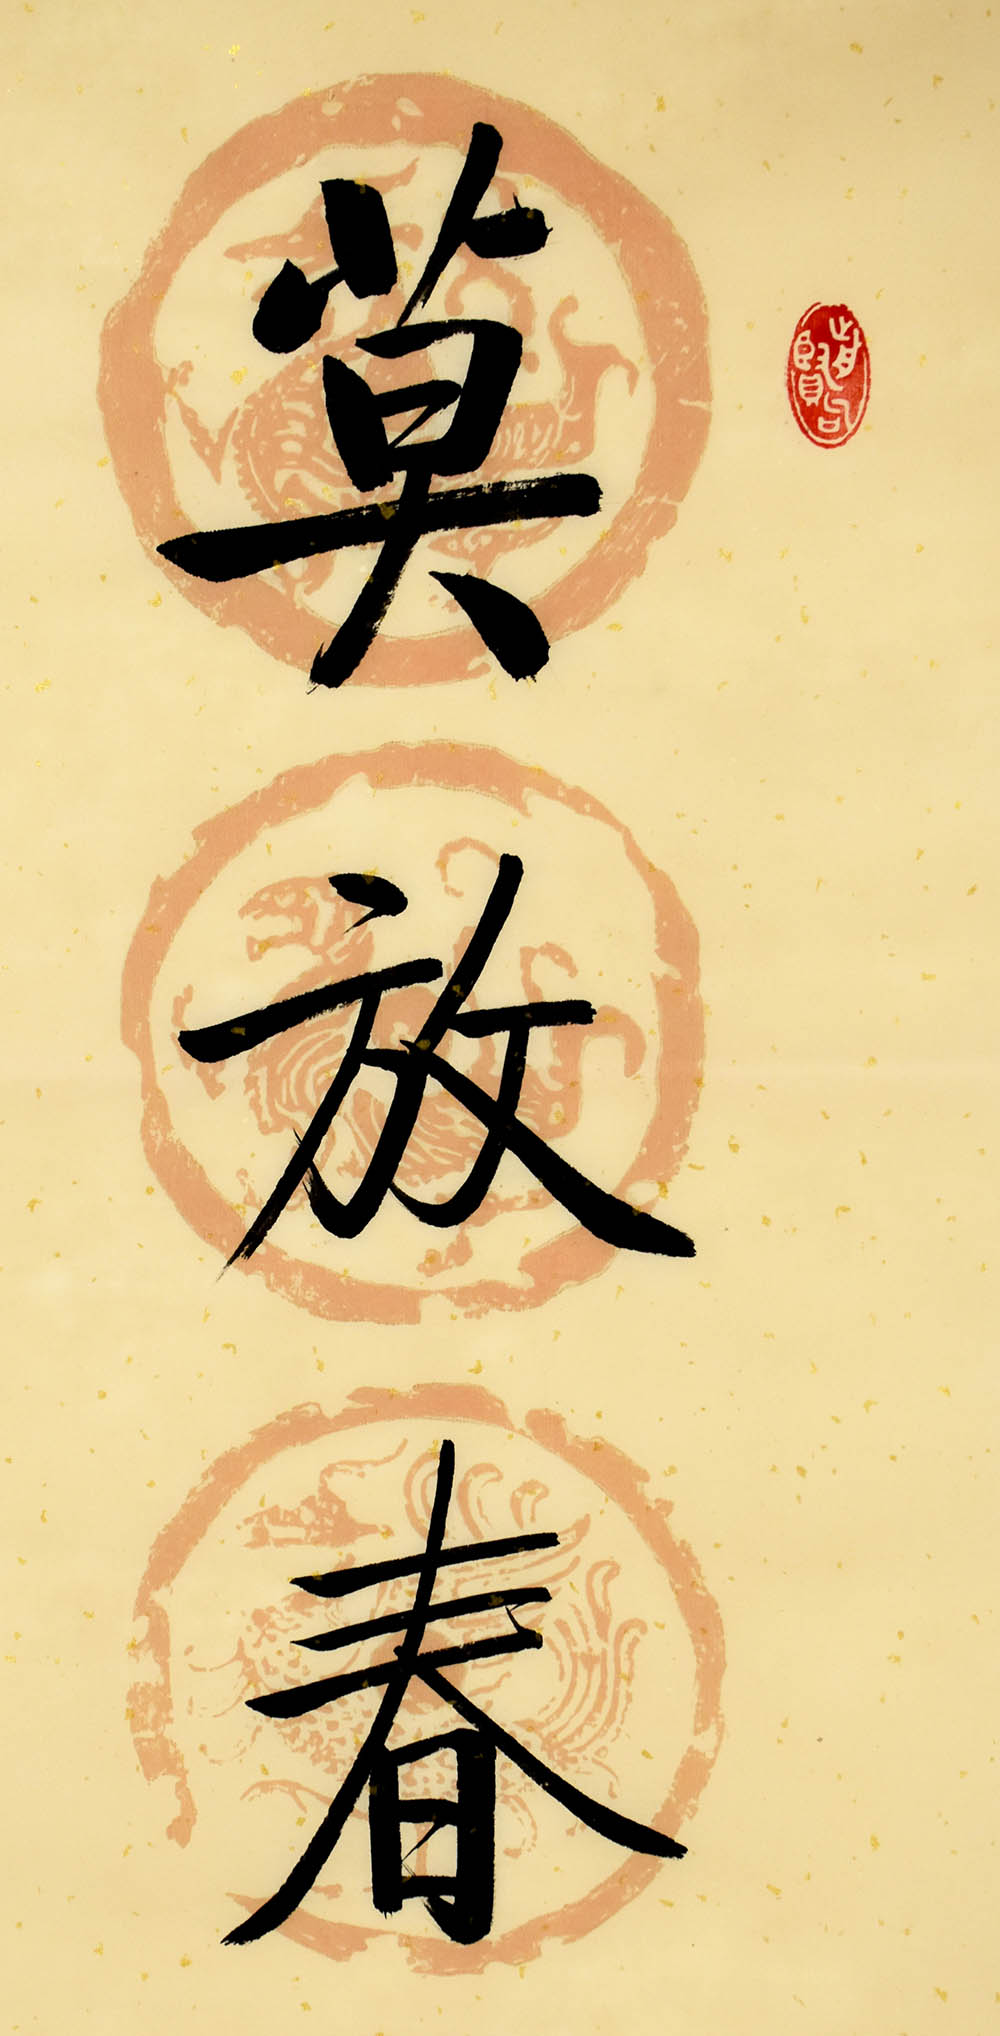 莫放春